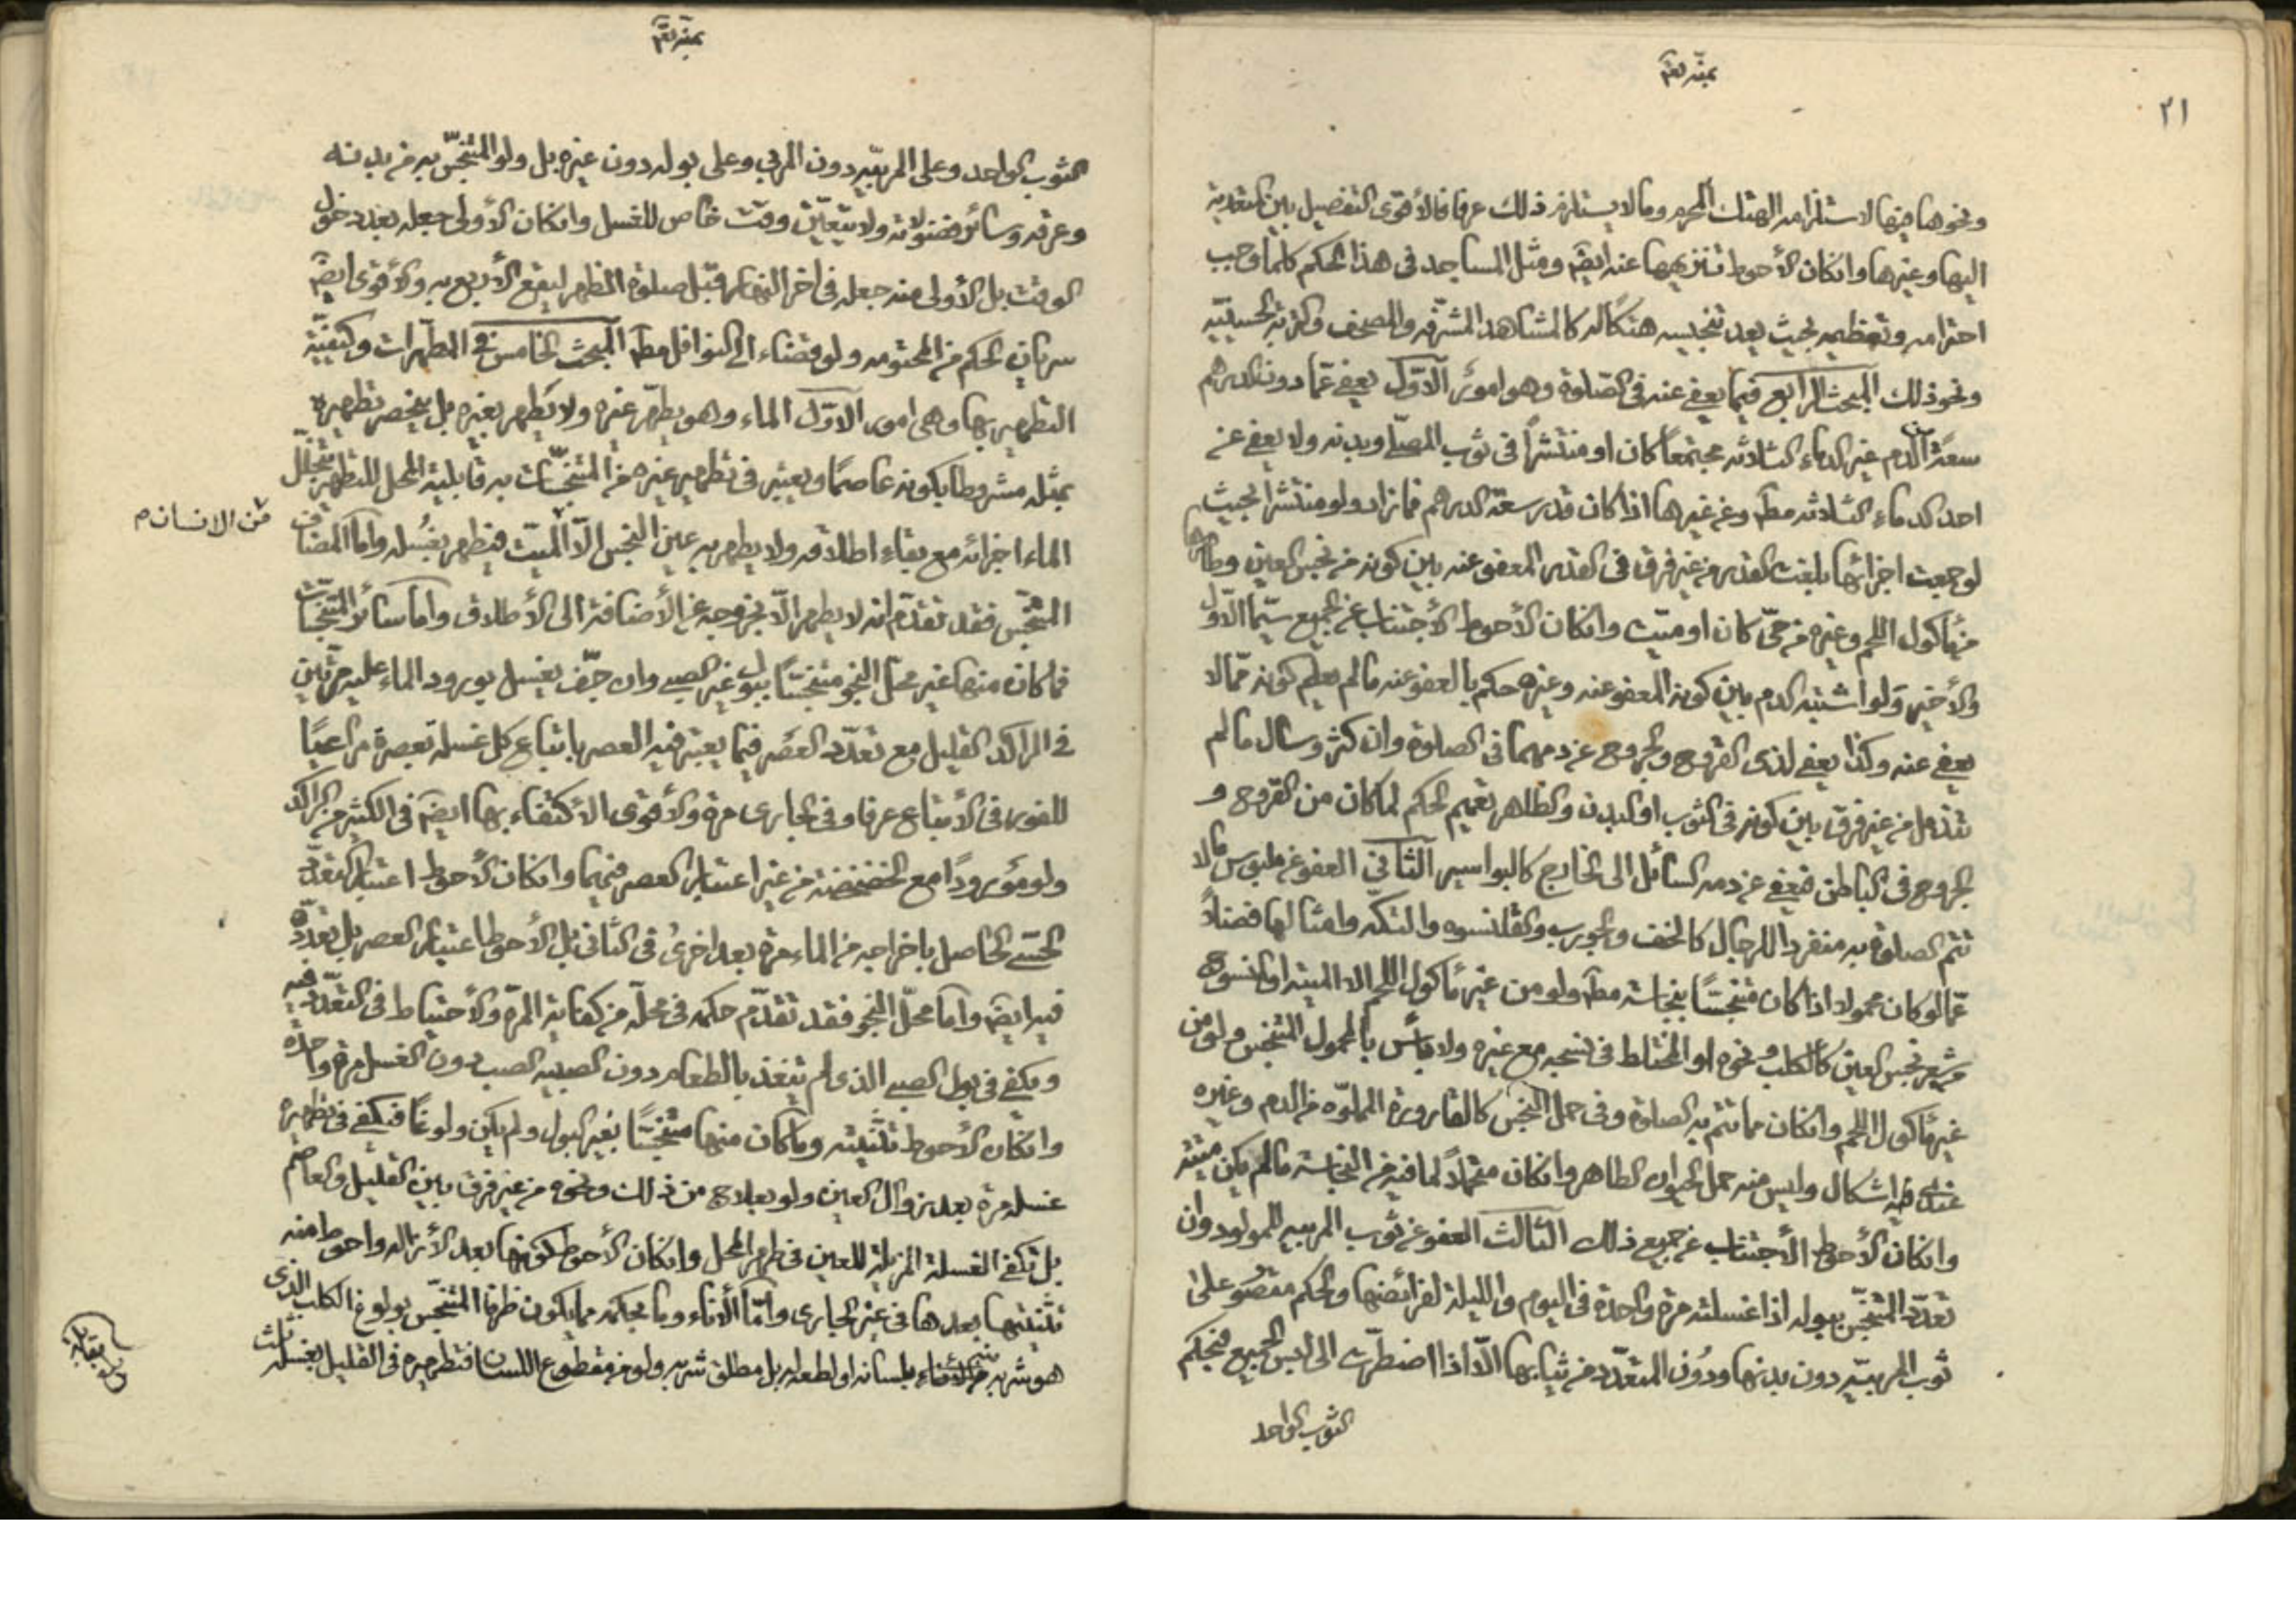 ٢١
بمنّه تعم
ونحوها فيها لاستلزامه الهتك المحرم وما لا يستلزم ذلك عرفا فالأقوى التفصيل بين المتعدية
اليها وغيرها وانكان الأحوط تنزيهها عنه ايضا ومثل المساجد فى هذا الحكم كلما وجب
احترامه وتعظيمه بحيث يعد تنجيسه هتكا له كالمشاهد المشرّفه والمصحف والتربه الحسينيّه
ونحو ذلك المبحث الرابع فيما يعفى عنه فى الصّلوة وهو امور الاوّل يعفى عمّا دون الدرهم
سعةً من الدم غير الدماء الثلاثه مجتمعًا كان او منتشرًا فى ثوب المصلّى وبدنه ولا يعفى عن
احد الدماء الثلاثه مطا وعن غيرها اذا كان قدر سعة الدرهم فما زاد ولو منتشرا بحيث
لو جمعت اجزائها بلغت القدر من غير فرق فى القدر المعفو عنه بين كونه من نجس العين وطاهرها
مأكول اللحم وغيره من حىّ كان او ميّت وانكان الأحوط الأجتناب عن الجميع سيّما الأوّل
والأخير ولو اشتبه الدم بين كونه المعفو عنه وغيره حكم بالعفو عنه ما لم يعلم كونه ممّا لا
يعفى عنه وكذا يعفى لذى القروح والجروح عن دمهما فى الصلوة وان كثر وسال ما لم
تندمل من غير فرق بين كونه فى الثوب او البدن والظاهر تعميم الحكم لما كان من القروح و
الجروح فى الباطن فيعفى عن دمه السائل الى الخارج كالبواسير الثانى العفو عن ملبوس ما لا
تتم الصلوة به منفردا للرجال كالخف والجورب والقلنسوه والتكّه وامثالها فضلاً
عمّا لو كان محمولا اذا كان متنجسًا بنجاسته مطا ولو من غير مأكول اللحم الا الميته او المنسوج
من شعر نجس العين كالكلب ونحوه او المختلط فى نسجه مع غيره ولا بأس بالمحمول المتنجس ولو من
غير مأكول اللحم وانكان مما تتم به الصلوة وفى حمل النجس كالقارورة المملوّه من الدم وغيره
عندى فيه اشكال وليس منه حمل الحيوان الطاهر وانكان متحملاً لما فيه من النجاسة ما لم يكن ميته
وانكان الأحوط الأجتناب عن جميع ذلك الثالث العفو عن ثوب المربيه للمولود وان
تعدّد المتنجّس ببوله اذا غسلته مرة واحدة فى اليوم والليلة لفرائضها والحكم مقصور على
ثوب المربيّه دون بدنها ودون المتعدّد من ثيابها الّا اذا اضطرّت الى لبس الجميع فبحكم
الثوب الواحد
بمنّه تعم
الثوب الواحد وعلى المربيّه دون المربى وعلى بوله دون غيره بل ولو المتنجّس به من بدنه
وعرقه وسائر فضولاته ولا يتعيّن وقت خاص للغسل وانكان الأولى جعله بعد دخول
الوقت بل الأولى منه جعله فى اخر النهار قبل صلوة الظهر ليقع الأربع به والأقوى ايضا
سريان الحكم من المحتومه ولو قضاء الى النوافل مطا المبحث الخامس فى المطهّرات وكيفيّة
التطهير بها وهى امور الاوّل الماء وهو يطهّر غيره ولا يُطهر بغيره بل ينحصر تطهيره
بمثله مشروطا بكونه عاصمًا ويعتبر فى تطهير غيره من المتنجّسات به قابلية المحل للتطهر بتخلّل
الماء اجزائه مع بقاء اطلاقه ولا يطهر به عين النجس الّا الميّت فيطهر بغُسله وامّا المضاف
من الانسان م
المتنجّس فقد تقدّم انه لا يطهر الّا بخروجه عن الأضافة الى الأطلاق واما سائر المتنجّسات
فما كان منها غير محلّ النجو متنجسًا ببول غير الصبى وان جفّ يغسل بورود الماء عليه مرّتين
فى الراكد القليل مع تعدّد العصَر فيما يعتبر فيه العصر باتباع كل غسله بعصرة مراعيًا
للفور فى الأتباع عرفا وفى الجارى مرة والأقوى الاكتفاء بها ايضا فى الكثير من الراكد
ولو مورودًا مع الخضخضة من غير اعتبار العصر فيهما وانكان الأحوط اعتبار التعدّد
الحسّى الحاصل باخراجه من الماء مرة بعد اخرى فى الثانى بل الأحوط اعتبار العصر بل تعدّده
فيه ايضا وامّا محلّ النجو فقد تقدّم حكمه فى محلّه من كفاية المرّة والأحتياط فى التعدّد فيه
ويكفى فى بول الصبى الذى لم يتغذ بالطعام دون الصبيه الصب دون الغسل مرة واحدة
وانكان الأحوط تثنيته وما كان منها متنجسًا بغير البول ولم يكن ولوغًا فيكفى فى تطهيره
غسله مرة بعد زوال العين ولو بعلاج من ذلك ونحوه من غير فرق بين القليل والعاصم
بل تكفى الغسلة المزيلة للعين فى طهر المحل وانكان الأحوط كونها بعد الأزاله واحوط منه
تثنيتها بعدها فى غير الجارى وامّا الأناء وما بحكمه مما يكون ظرفا المتنجّس بولوغ الكلب الذى
هو شربه من الأناء بلسانه او لطعه بل مطلق شربه ولو من مقطوع اللسان فتطهيره فى القليل بغسله ثلث
بلغ مقابلة